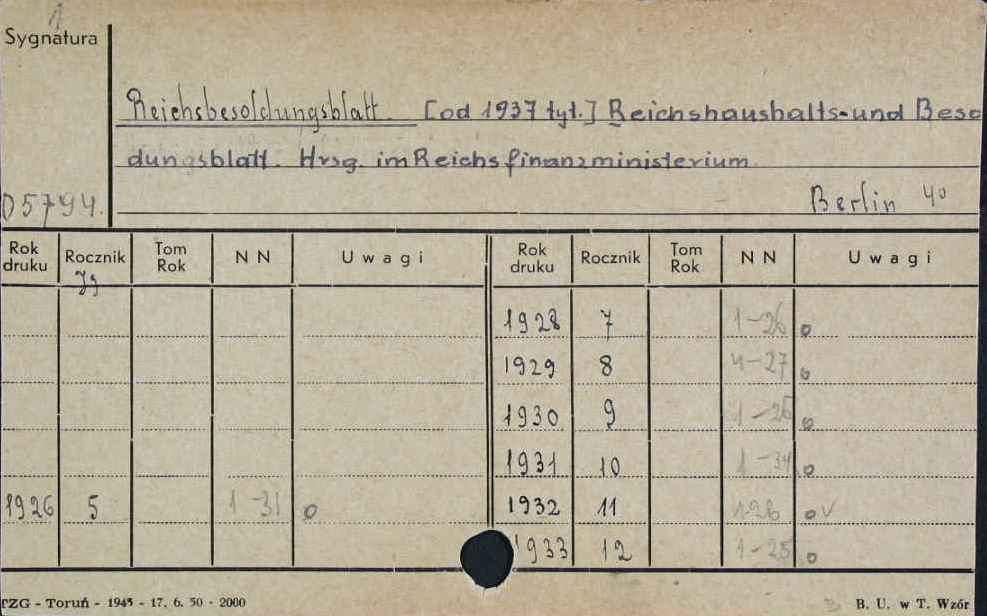 1
Sygnatura
Reichsbesoldungsblatt. [od 1937 tyt.] Reichshaushalts-und Beso
dungsblatt. Hrsg. im Reichsfinanzministerium.
D5794.
Berlin 4o
Rok druku Rocznik Tom Rok NN Uwagi Rok druku Rocznik Tom Rok NN Uwagi
Jg
1928 7 1-26 o
1929 8 -27 o
1930 9 1- o
1931 10 1-34 o
1926 5 1-31 o 1932 11 1-26 o v
1933 12 1-25 o
TZG - Toruń - 1945 - 17. 6. 50 - 2000
B. U. w T. Wzór